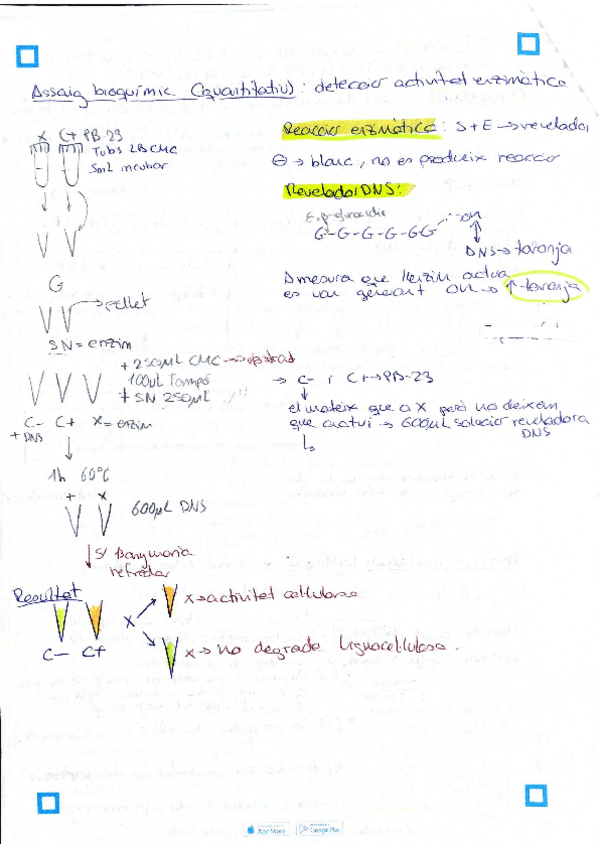 Assaig bioquímic (quantitatiu): detecció activitat enzimàtica
X C+ PB-23
Tubs LB CMC
5mL incubar
Reacció enzimàtica: S + E → revelador
⊖ → blanc, no es produeix reacció
Revelador DNS:
G-G-G-G-GG OH
DNS → taronja
A mesura que l'enzim actua
es van generant OH → ↑ taronja
G
→ pellet
SN = enzim
+ 250µL CMC →
100µL Tampó
+ SN 250µL
C- C+ X = enzim
+ DNS
→ C- i C+ → PB-23
el mateix que a X però no deixem
que actuï → 600µL solució reveladora
DNS
1h 60°C
+ X
600µL DNS
5' Banymaria
refredar
Resultat
C- C+
X
X → activitat cellulosa
X → no degrada lignocellulosa.
App Store
Google Play